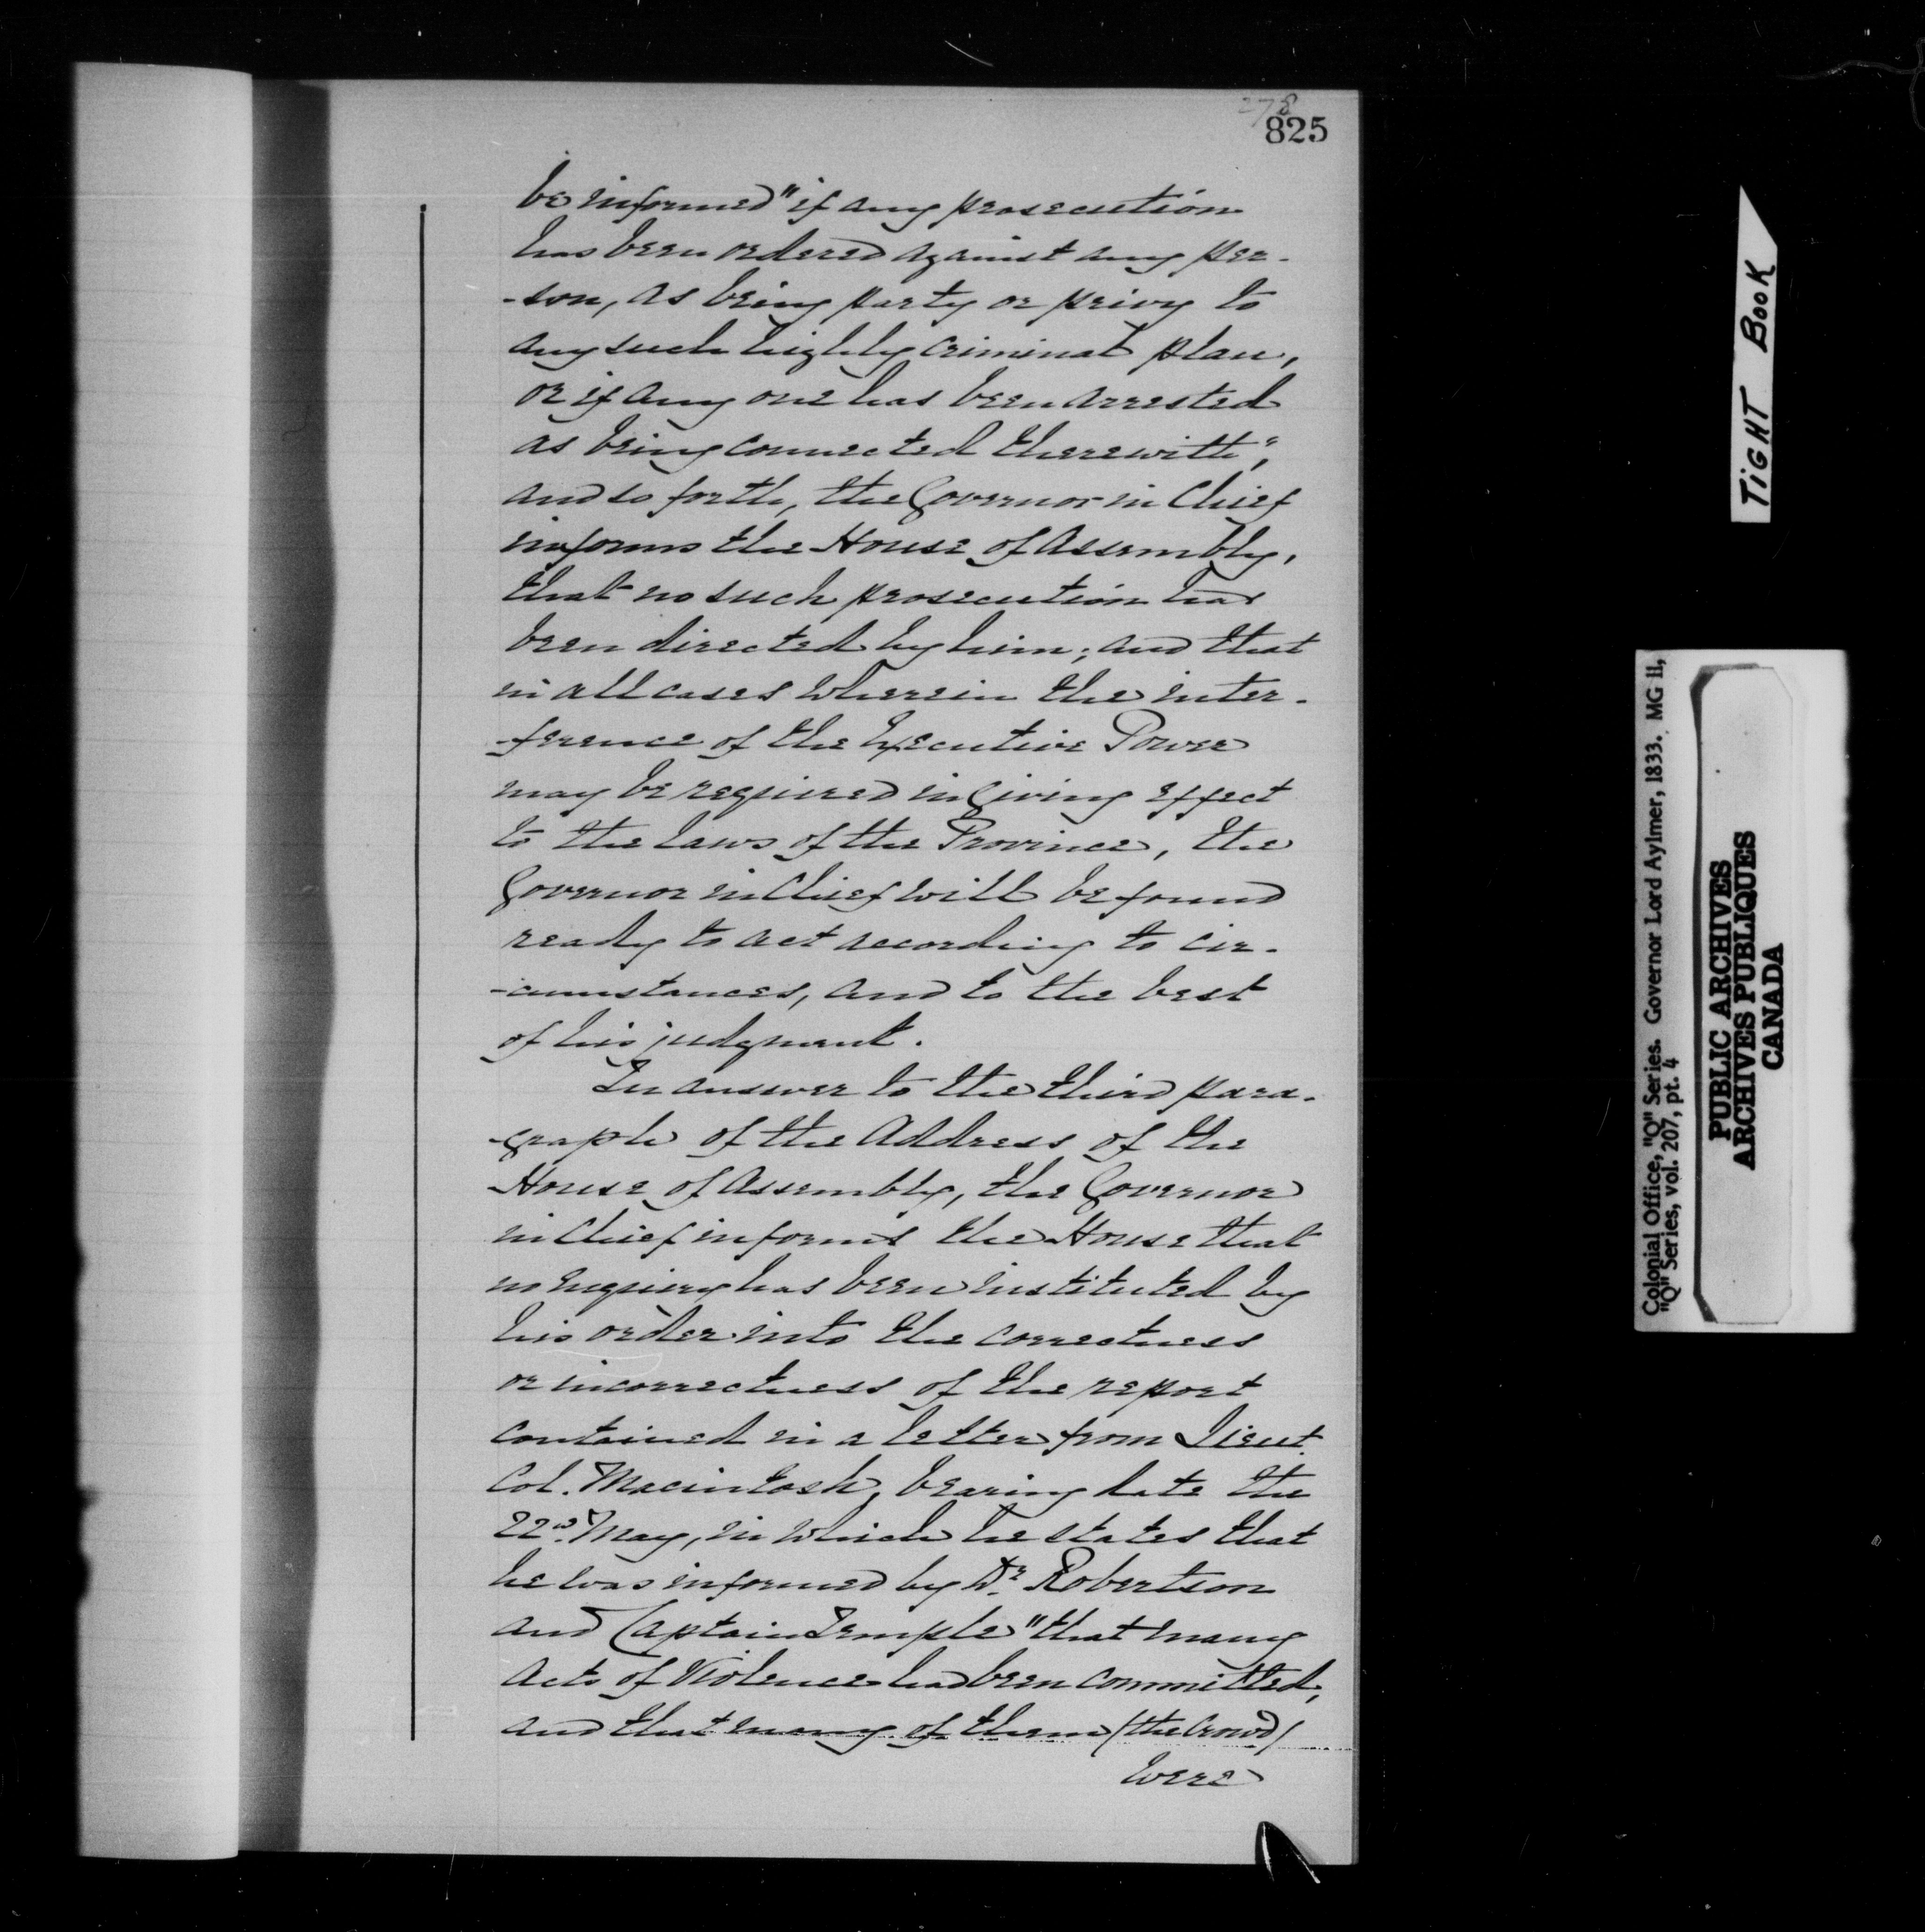 278
825
be informed "if any prosecution
has been ordered against any per-
-son, as being party or privy to
any such highly criminal plan,
or if any one has been arrested
as being connected therewith",
and so forth, the Governor in Chief
informs the House of Assembly,
that no such prosecution has
been directed by him; and that
in all cases wherein the inter-
-ference of the Executive Power
may be required in giving effect
to the laws of the Province, the
Governor in Chief will be found
ready to act according to cir-
-cumstances, and to the best
of his judgment.
In answer to the third para-
-graph of the Address of the
House of Assembly, the Governor
in Chief informs the House that
no Enquiry has been instituted by
his order into the correctness
or incorrectness of the report
contained in a letter from Lieut.
Col. Macintosh, bearing date the
22nd. May, in which he states that
he was informed by Dr. Robertson
and Captain Temple "that many
acts of Violence had been committed,
and that many of them (the Crowd)
were
TIGHT BOOK
Colonial Office, "Q" Series. Governor Lord Aylmer, 1833. MG 11,
"Q" Series, vol. 207, pt. 4
PUBLIC ARCHIVES
ARCHIVES PUBLIQUES
CANADA